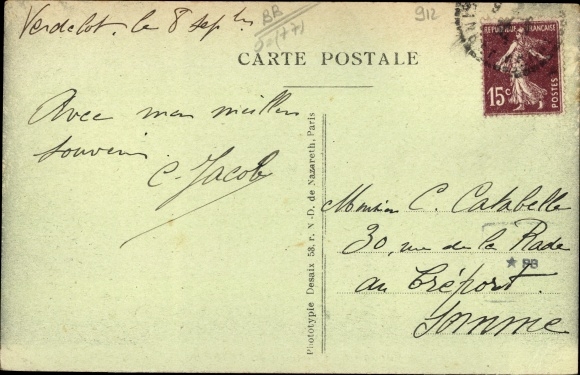 Verdelot. le 8 sept
BB
912
CARTE POSTALE
REPUBLIQUE FRANÇAISE
15c
POSTES
Avec mon meilleur
souvenir.
C. Jacob
Monsieur C. Catabelle
30, rue de la Rade
au Tréport.
Somme
Phototypie Desaix 58, r. N.-D. de Nazareth, Paris